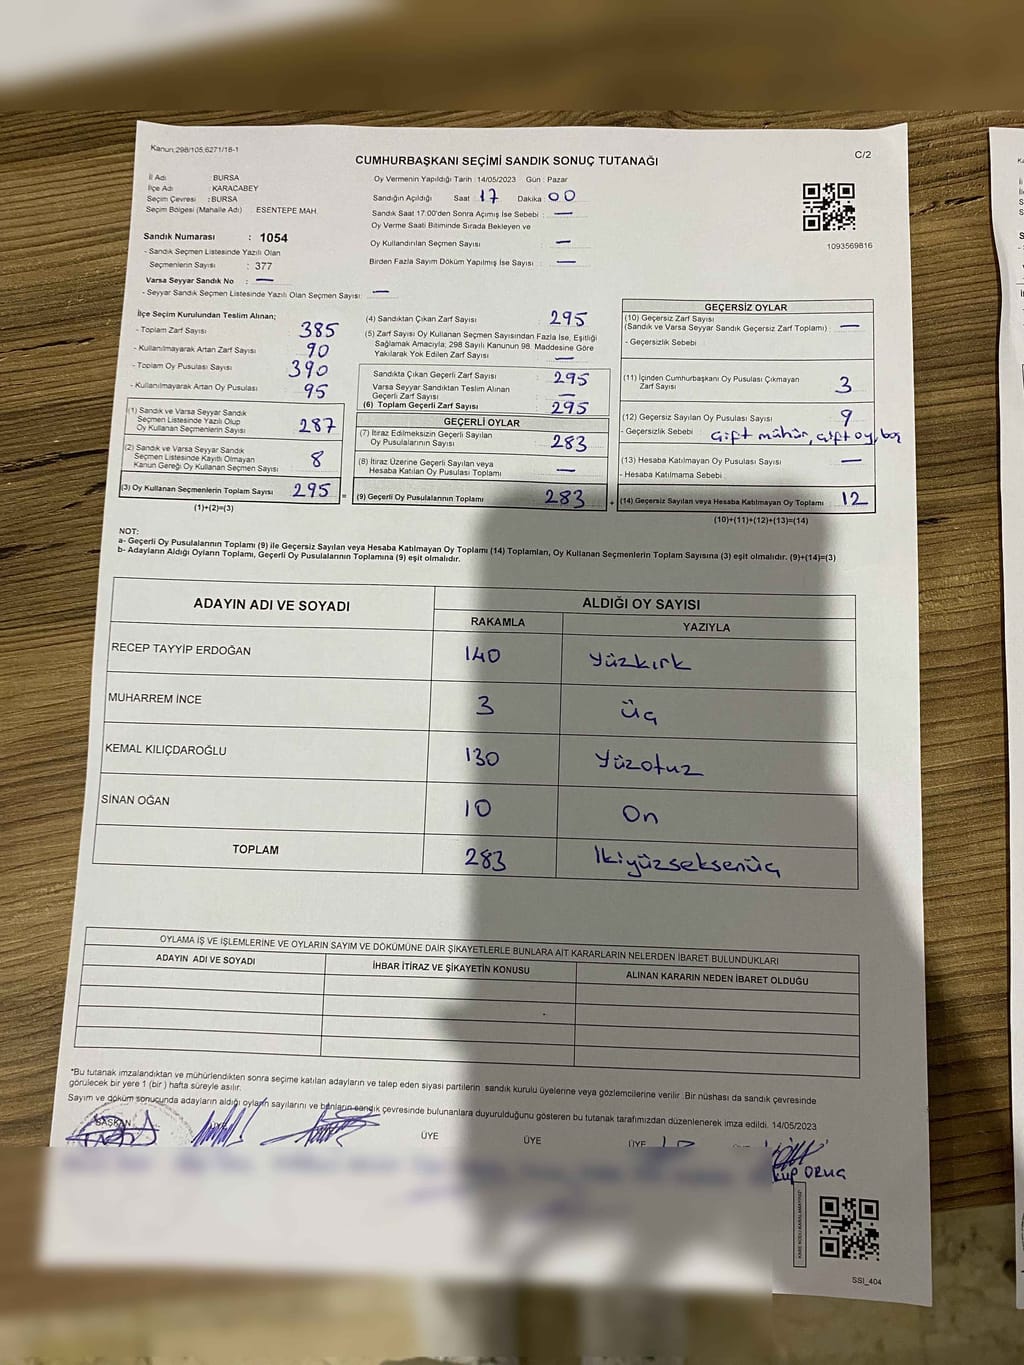 Kanun,298/105,6271/18-1
C/2
CUMHURBAŞKANI SEÇİMİ SANDIK SONUÇ TUTANAĞI
İl Adı : BURSA
İlçe Adı : KARACABEY
Seçim Çevresi : BURSA
Seçim Bölgesi (Mahalle Adı) ESENTEPE MAH.
Sandık Numarası : 1054
- Sandık Seçmen Listesinde Yazılı Olan
Seçmenlerin Sayısı : 377
Varsa Seyyar Sandık No : —
- Seyyar Sandık Seçmen Listesinde Yazılı Olan Seçmen Sayısı: —
Oy Vermenin Yapıldığı Tarih : 14/05/2023 Gün : Pazar
Sandığın Açıldığı Saat 17 Dakika : 00
Sandık Saat 17:00'den Sonra Açımış İse Sebebi : —
Oy Verme Saati Bitiminde Sırada Bekleyen ve
Oy Kullandırılan Seçmen Sayısı —
Birden Fazla Sayım Döküm Yapılmış İse Sayısı : —
1093569816
İlçe Seçim Kurulundan Teslim Alınan;
- Toplam Zarf Sayısı : 385
- Kullanılmayarak Artan Zarf Sayısı : 90
- Toplam Oy Pusulası Sayısı : 390
- Kullanılmayarak Artan Oy Pusulası : 95
(1) Sandık ve Varsa Seyyar Sandık
Seçmen Listesinde Yazılı Olup
Oy Kullanan Seçmenlerin Sayısı : 287
(2) Sandık ve Varsa Seyyar Sandık
Seçmen Listesinde Kayıtlı Olmayan
Kanun Gereği Oy Kullanan Seçmen Sayısı : 8
(3) Oy Kullanan Seçmenlerin Toplam Sayısı : 295
(1)+(2)=(3)
(4) Sandıktan Çıkan Zarf Sayısı : 295
(5) Zarf Sayısı Oy Kullanan Seçmen Sayısından Fazla İse, Eşitliği
Sağlamak Amacıyla; 298 Sayılı Kanunun 98. Maddesine Göre
Yakılarak Yok Edilen Zarf Sayısı : —
Sandıkta Çıkan Geçerli Zarf Sayısı : 295
Varsa Seyyar Sandıktan Teslim Alınan
Geçerli Zarf Sayısı : —
(6) Toplam Geçerli Zarf Sayısı : 295
GEÇERLİ OYLAR
(7) İtiraz Edilmeksizin Geçerli Sayılan
Oy Pusulalarının Sayısı : 283
(8) İtiraz Üzerine Geçerli Sayılan veya
Hesaba Katılan Oy Pusulası Toplamı : —
= (9) Geçerli Oy Pusulalarının Toplamı : 283
GEÇERSİZ OYLAR
(10) Geçersiz Zarf Sayısı
(Sandık ve Varsa Seyyar Sandık Geçersiz Zarf Toplamı) : —
- Geçersizlik Sebebi :
(11) İçinden Cumhurbaşkanı Oy Pusulası Çıkmayan
Zarf Sayısı : 3
(12) Geçersiz Sayılan Oy Pusulası Sayısı : 9
- Geçersizlik Sebebi : Çift mühür, çift oy, boş
(13) Hesaba Katılmayan Oy Pusulası Sayısı : —
- Hesaba Katılmama Sebebi :
+ (14) Geçersiz Sayılan veya Hesaba Katılmayan Oy Toplamı : 12
(10)+(11)+(12)+(13)=(14)
NOT:
a- Geçerli Oy Pusulalarının Toplamı (9) ile Geçersiz Sayılan veya Hesaba Katılmayan Oy Toplamı (14) Toplamları, Oy Kullanan Seçmenlerin Toplam Sayısına (3) eşit olmalıdır. (9)+(14)=(3)
b- Adayların Aldığı Oyların Toplamı, Geçerli Oy Pusulalarının Toplamına (9) eşit olmalıdır.
ADAYIN ADI VE SOYADI
ALDIĞI OY SAYISI
RAKAMLA YAZIYLA
RECEP TAYYİP ERDOĞAN 140 Yüzkırk
MUHARREM İNCE 3 Üç
KEMAL KILIÇDAROĞLU 130 Yüzotuz
SİNAN OĞAN 10 On
TOPLAM 283 İkiyüzseksenüç
OYLAMA İŞ VE İŞLEMLERİNE VE OYLARIN SAYIM VE DÖKÜMÜNE DAİR ŞİKAYETLERLE BUNLARA AİT KARARLARIN NELERDEN İBARET BULUNDUKLARI
ADAYIN ADI VE SOYADI İHBAR İTİRAZ VE ŞİKAYETİN KONUSU ALINAN KARARIN NEDEN İBARET OLDUĞU
*Bu tutanak imzalandıktan ve mühürlendikten sonra seçime katılan adayların ve talep eden siyasi partilerin sandık kurulu üyelerine veya gözlemcilerine verilir. Bir nüshası da sandık çevresinde
görülecek bir yere 1 (bir) hafta süreyle asılır.
Sayım ve döküm sonucunda adayların aldığı oyların sayılarını ve bunların sandık çevresinde bulunanlara duyurulduğunu gösteren bu tutanak tarafımızdan düzenlenerek imza edildi. 14/05/2023
BAŞKAN ÜYE ÜYE ÜYE ÜYE
SSI_404